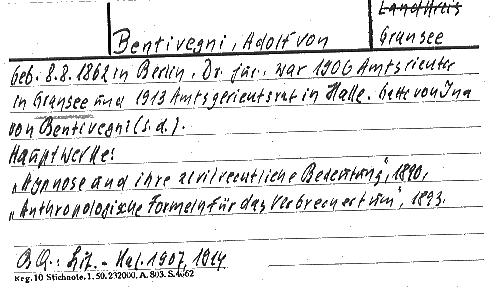 Landkreis
Bentivegni, Adolf von Gransee
geb. 8.8.1862 in Berlin, Dr. jur., war 1906 Amtsrichter
in Gransee und 1913 Amtsgerichtsrat in Halle. Gatte von Ina
von Bentivegni (s.d.).
Hauptwerke:
„Hypnose und ihre zivilrechtliche Bedeutung", 1890.
„Anthropologische Formeln für das Verbrechertum", 1893.
B.Q.: Lit.-Kal. 1907, 1914
Reg. 10 Stichnote. I. 50. 232000. A. 803. S. 4062